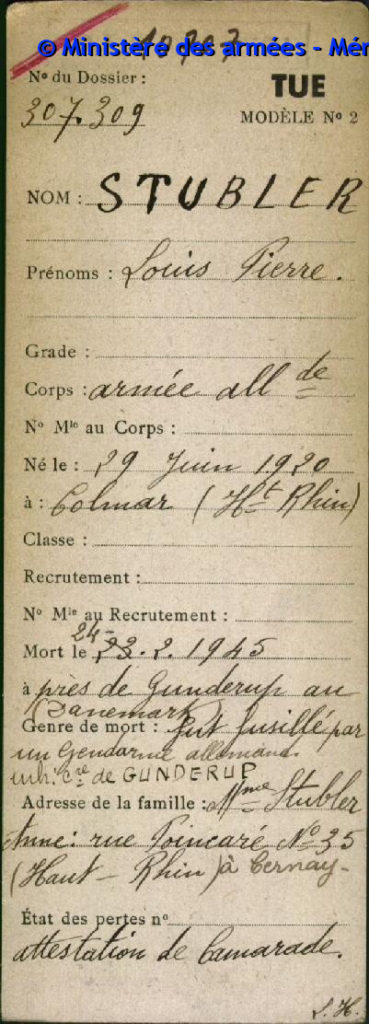 © Ministère des armées - Mém
N° du Dossier :
307.309
TUE
MODÈLE N° 2
NOM : STUBLER
Prénoms : Louis Pierre.
Grade :
Corps : armée all de
N° Mle au Corps :
Né le : 29 Juin 1920
à : Colmar (Ht Rhin)
Classe :
Recrutement :
N° Mle au Recrutement :
24-
Mort le 23.2.1945
à près de Gunderup au
(Danemark)
Genre de mort : fut fusillé par
un Gendarme allemand.
inh. cre de GUNDERUP
Adresse de la famille : Mme Stubler
Anne : rue Poincaré N° 35
(Haut-Rhin) à Cernay-
État des pertes n°
attestation de Camarade.